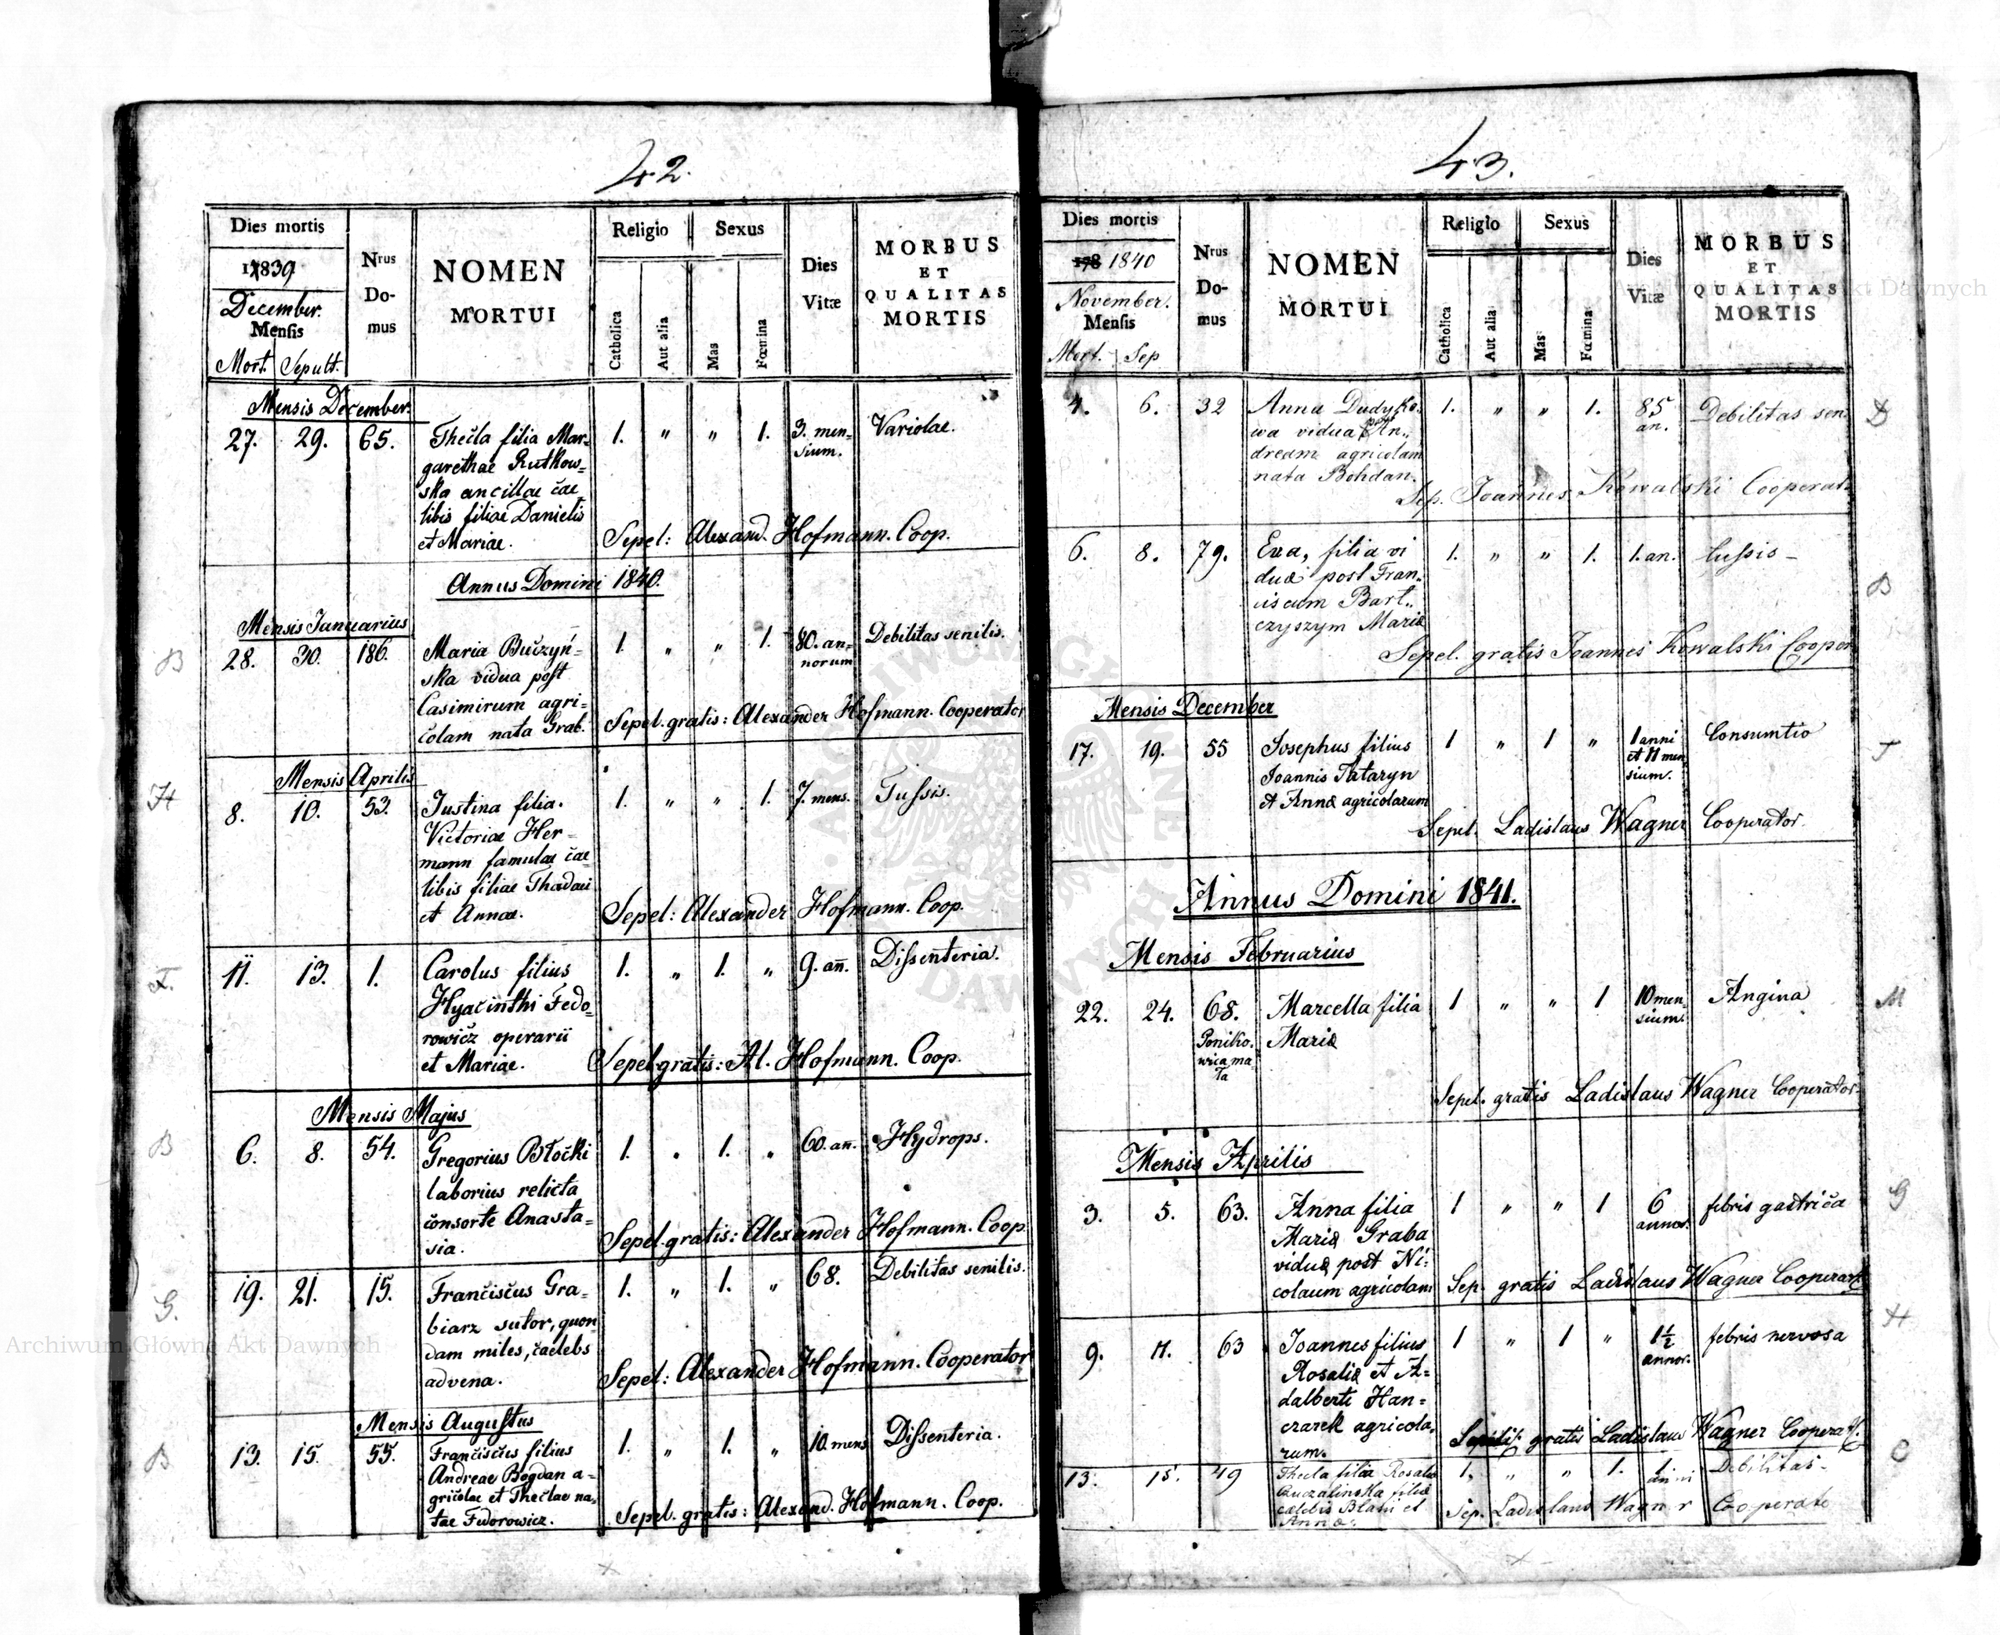 42.
Dies mortis
Nrus Domus
NOMEN MORTUI
Religio
Sexus
Dies Vitæ
MORBUS ET QUALITAS MORTIS
1839
December.
Mensis
Mort. Sepult.
Catholica
Aut alia
Mas
Fœmina
Mensis December.
27. 29. 65. Thecla filia Mar- 1. " " 1. 3. men- Variolae.
garethae Rutkow- sium.
ska ancillae cae
libis filiae Danielis
et Mariae. Sepel: Alexand. Hofmann. Coop.
Annus Domini 1840.
Mensis Januarius
B 28. 30. 186. Maria Buczyń- 1. " " 1. 80. an- Debilitas senilis.
ska vidua post norum
Casimirum agri-
colam nata Grab. Sepel. gratis: Alexander Hofmann. Cooperator
Mensis Aprilis
H 8. 10. 53. Justina filia. 1. " " 1. 7. mens. Tussis.
Victoriae Her-
mann famulae cae
libis filiae Thadaei
et Annae. Sepel: Alexander Hofmann. Coop.
F. 11. 13. 1. Carolus filius 1. " 1. " 9. añ. Dissenteria.
Hyacinthi Fedo-
rowicz operarii
et Mariae. Sepel gratis: Al. Hofmann. Coop.
Mensis Majus
B 6. 8. 54. Gregorius Błocki 1. " 1. " 60. an. Hydrops.
laborius relicta
consorte Anasta-
sia. Sepel. gratis: Alexander Hofmann. Coop.
G. 19. 21. 15. Franciscus Gra- 1. " 1. " 68. Debilitas senilis.
biarz sutor, quon
dam miles, caelebs
advena. Sepel: Alexander Hofmann. Cooperator
Mensis Augustus
B 13. 15. 55. Franciscus filius 1. " 1. " 10. mens Dissenteria.
Andreae Bogdan a-
gricolae et Theclae na-
tae Fedorowicz. Sepel. gratis: Alexand. Hofmann. Coop.
43.
Dies mortis
Nrus Domus
NOMEN MORTUI
Religio
Sexus
Dies Vitæ
MORBUS ET QUALITAS MORTIS
178 1840
November.
Mensis
Mort. Sep
Catholica
Aut alia
Mas
Fœmina
4. 6. 32 Anna Dudyko. 1. " " 1. 85 Debilitas sen. D
wa vidua post An.. an.
dream agricolam
nata Bohdan. Sep. Joannes Kowalski Cooperat
6. 8. 79. Eva, filia vi 1. " " 1. 1. an. tussis - B
duæ post Fran.
ciscum Bart..
czyszym Mariæ
Sepel. gratis Joannes Kowalski Cooper
Mensis December
17. 19. 55 Josephus filius 1 " 1 " 1 anni Consumtio T
Joannis Tataryn et 11 men
et Annæ agricolarum sium.
Sepel. Ladislaus Wagner Cooperator.
Annus Domini 1841.
Mensis Februarius
22. 24. 68. Marcella filia 1 " " 1 10 men Angina M
Poniko. Mariæ sium.
wica ma
ła
Sepel. gratis Ladislaus Wagner Cooperator.
Mensis Aprilis
3. 5. 63. Anna filia 1 " " 1 6 febris gastrica G
Mariæ Graba annor.
viduæ post Ni:
colaum agricolam Sep. gratis Ladislaus Wagner Cooperat
9. 11. 63 Joannes filius 1 " 1 " 1½ febris nervosa H
Rosaliæ et A- annor.
dalberti Han=
czarek agricola,
rum. gratis Ladislaus Wagner Cooperat.
13. 15. 49 Thecla filia Rosaliæ 1. " " 1. 1 anni Debilitas- C
filiæ
cælebis Blasii et
Annæ. Sep. Ladislaus Wagner Cooperato
Archiwum Główne Akt Dawnych
ARCHIWUM GŁÓWNE AKT DAWNYCH